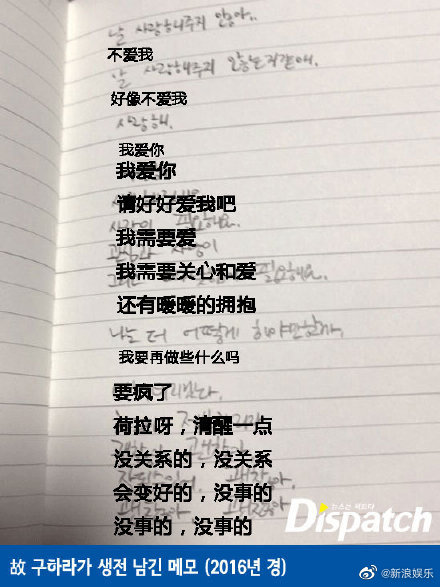 날 사랑해주지 않아..
不爱我
날 사랑해주지 않는것같애.
好像不爱我
사랑해.
我爱你
我爱你
请好好爱我吧
사랑이 필요해요.
我需要爱
我需要关心和爱
필요해요.
还有暖暖的拥抱
나는 더 어떻게 해야만할까.
我要再做些什么吗
要疯了
荷拉呀，清醒一点
没关系的，没关系
会变好的，没事的
没事的，没事的
뉴스는 팩트다
Dispatch
故 구하라가 생전 남긴 메모 (2016년 경)
@新浪娱乐